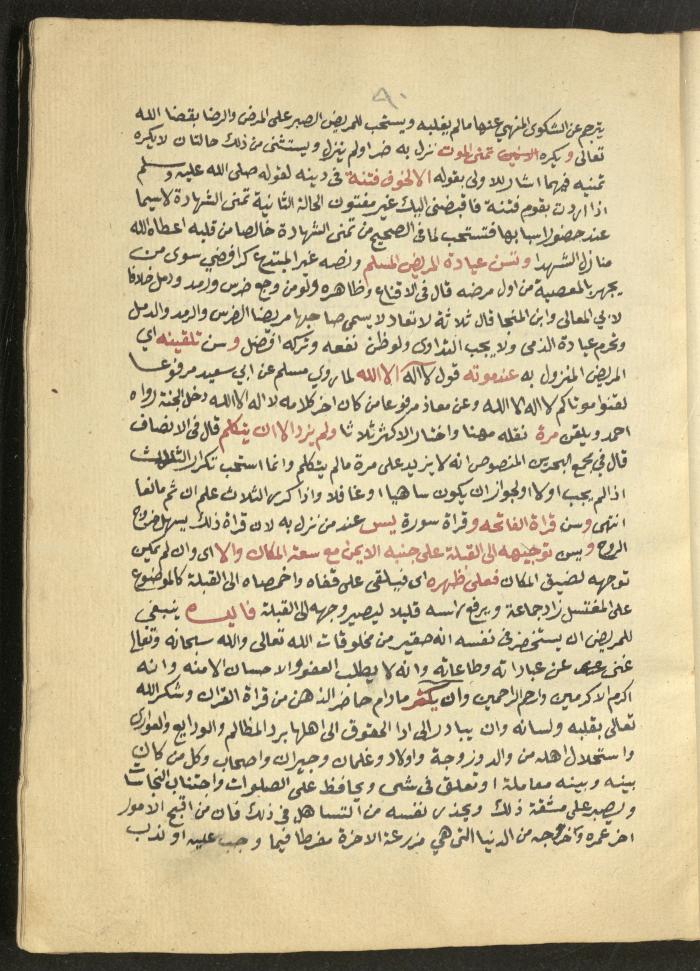 ٩٠
يترجم عن الشكوى المنهي عنها مالم يغلبه ويستحب للمريض الصبر على المرض والرضا بقضا الله
تعالى ويكره تمنى الموت نزل به ضر اولم ينزل ويستثنى من ذلك حالتان لا يكره
تمنيه فيهما اشار للاولى بقوله الا لخوف فتنة في دينه لقوله صلى الله عليه وسلم
اذا اردت بقوم فتنة فاقبضنى اليك غير مفتون الحالة الثانية تمنى الشهادة لاسيما
عند حضور اسبابها فتستحب لما فى الصحيح من تمنى الشهادة خالصا من قلبه اعطاه الله
منازل الشهدا وتسن عيادة المريض المسلم ونصه غير المبتدع كرافضي سوى من
يجهر بالمعصية من اول مرضه قال فى الاقناع وظاهره ولو من وجع ضرس ورمد ودمل خلافا
لابي المعالى وابن المنجا قال ثلاثة لا تعاد لا يسمى صاحبها مريضا الضرس والرمد والدمل
وتحرم عيادة الذمى ولا يجب التداوى ولو ظن نفعه وتركه افضل وسن تلقينه اي
المريض المنزول به عند موته قول لا اله الا الله لما روي مسلم عن ابي سعيد مرفوعا
لقنوا موتاكم لا اله الا الله وعن معاذ مرفوعا من كان اخر كلامه لا اله الا الله دخل الجنة رواه
احمد ويلقن مرة نقله مهنا واختار الاكثر ثلاثا ولم يزد الا ان يتكلم قال فى الانصاف
قال في مجمع البحرين المنصوص انه لا يزيد على مرة مالم يتكلم وانما استحب تكرار الثلاث
اذا لم يجب اولا لجواز ان يكون ساهيا او غافلا واذا كرر الثلاث علم ان ثم مانعا
انتهى وسن قراة الفاتحه وقراة سورة يس عند من نزل به لان قراة ذلك يسهل خروج
الروح ويسن توجيهه الى القبلة على جنبه الايمن مع سعة المكان والا اى وان لم يمكن
توجهه لضيق المكان فعلى ظهره اى فيلقى على قفاه واخمصاه الى القبلة كالموضوع
على المغتسل زاد جماعة ويرفع راسه قليلا ليصير وجهه الى القبلة فايده ينبغى
للمريض ان يستحضر فى نفسه انه حقير من مخلوقات الله تعالى والله سبحانه وتعالى
غنى عن عباداته وطاعاته وانه لا يطلب العفو والاحسان الا منه وانه
اكرم الاكرمين وارحم الراحمين وان يكثر مادام حاضر الذهن من قراة القران وشكر الله
تعالى بقلبه ولسانه وان يبادر الى ادا الحقوق الى اهلها برد المظالم والودايع والعوارى
واستحلال اهله من والد وزوجة واولاد وغلمان وجيران واصحاب وكل من كان
بينه وبينه معاملة او تعلق فى شى ويحافظ على الصلوات واجتناب النجاسات
ويصبر على مشقة ذلك ويحذر نفسه من التساهل في ذلك فان من اقبح الامور
اخر عمره وخروجه من الدنيا التى هي مزرعة الاخرة مفرطا فيما وجب عليه او ندب